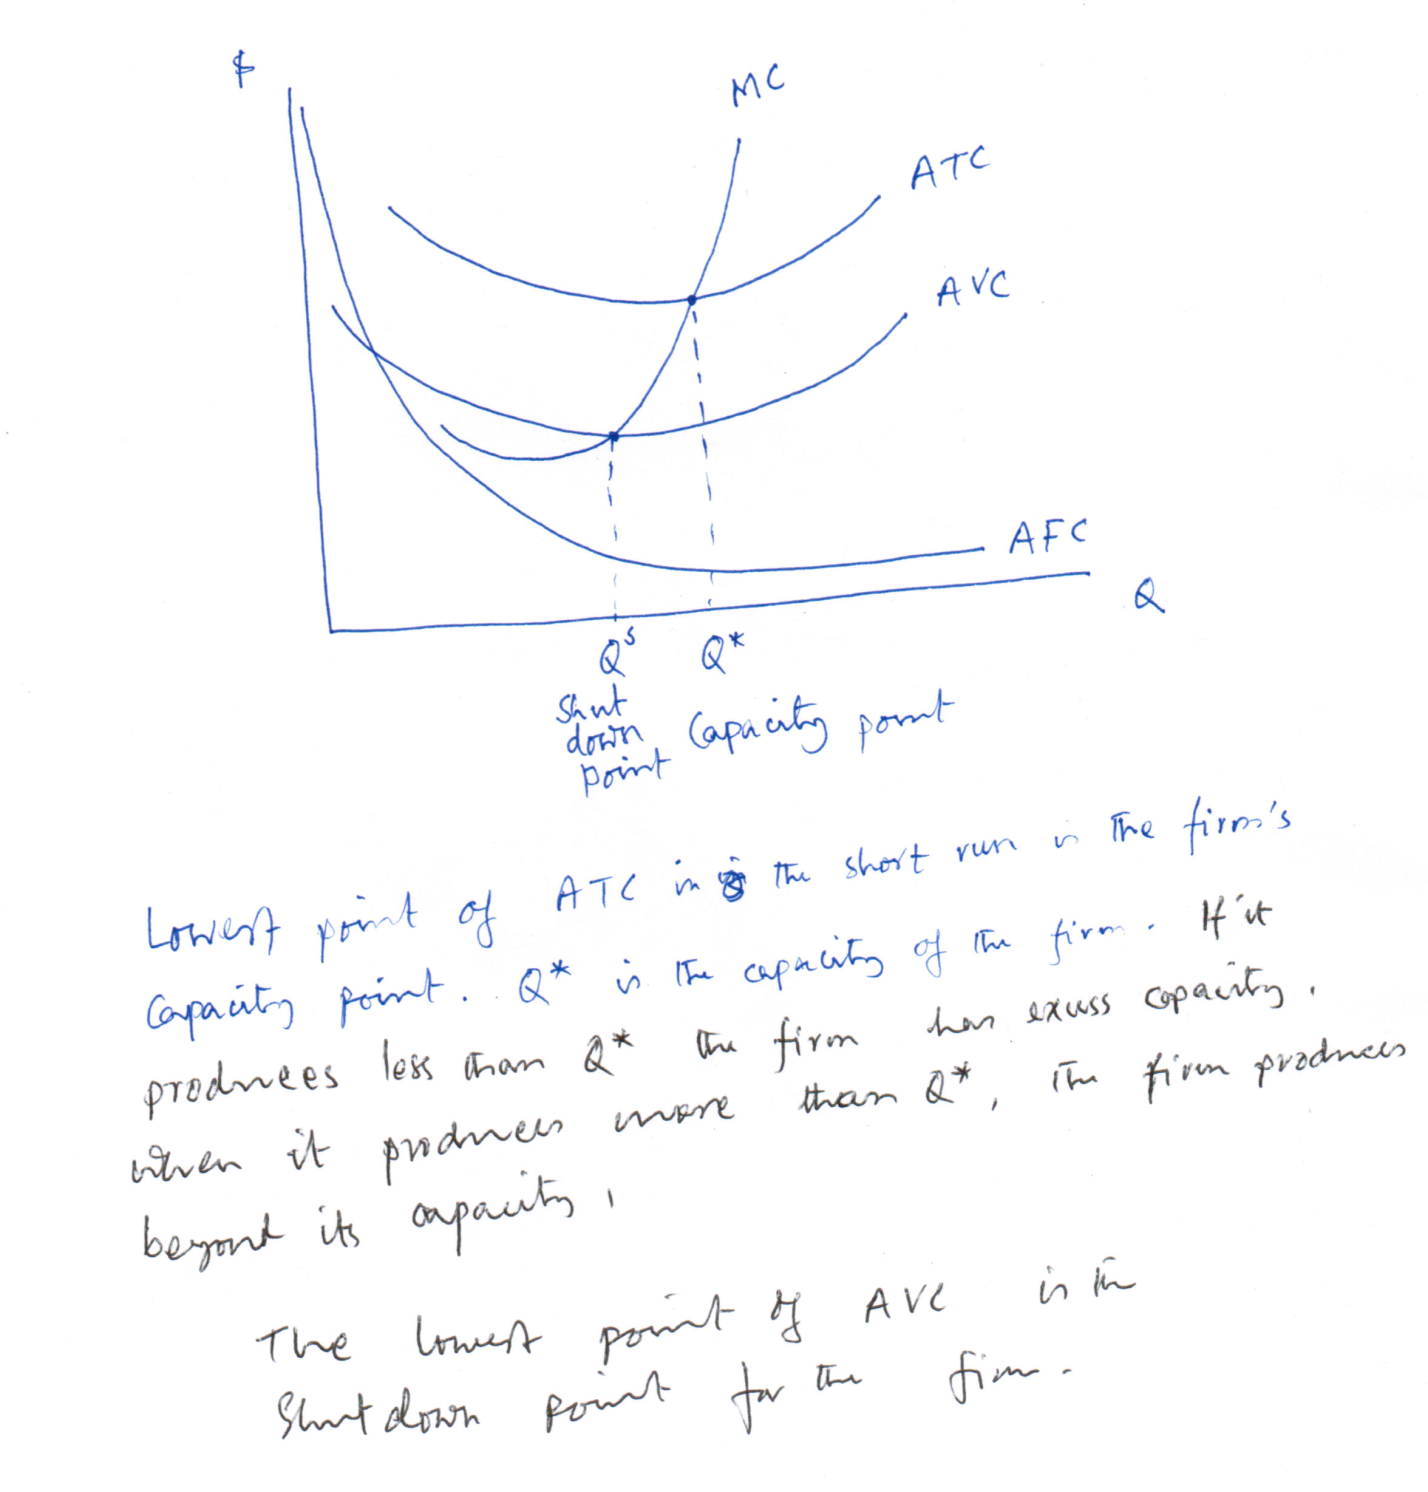 $
MC
ATC
AVC
AFC
Q
Qˢ Q*
Shut
down
point
Capacity point
Lowest point of ATC in the short run is the firm's
Capacity point. Q* is the capacity of the firm. If it
produces less than Q* the firm has excess capacity.
when it produces more than Q*, the firm produces
beyond its capacity.
The lowest point of AVC is the
Shutdown point for the firm.